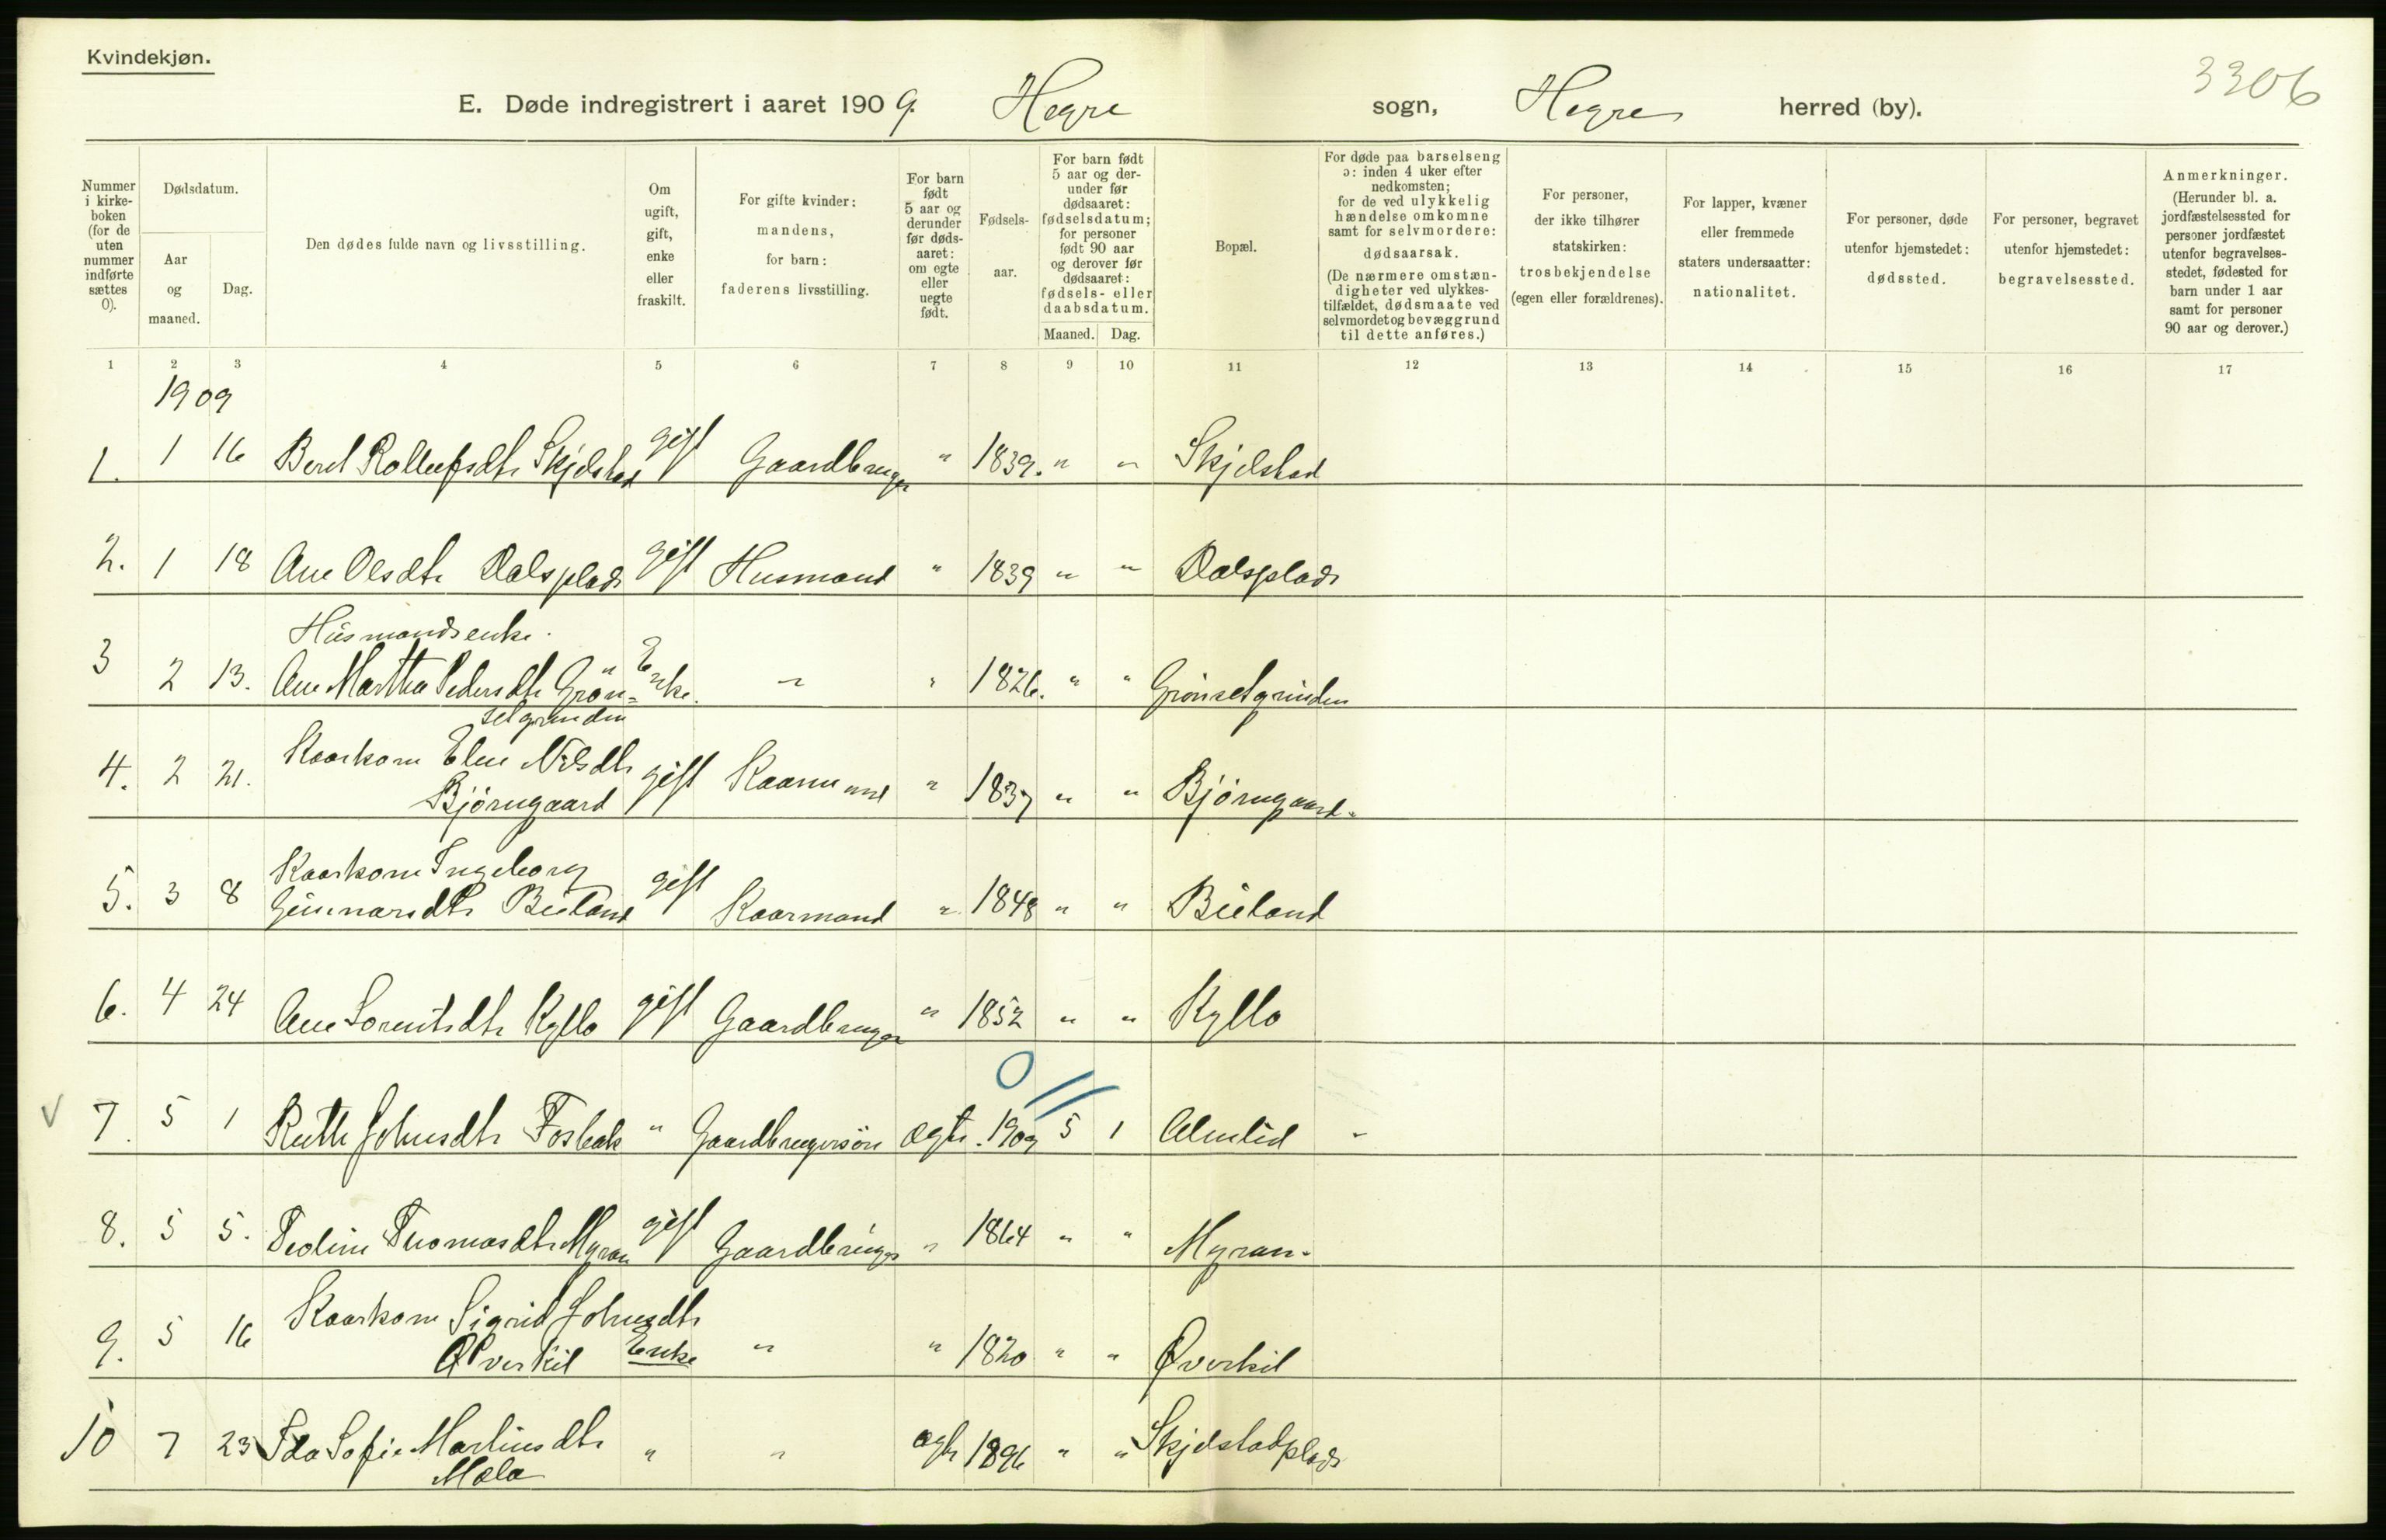 Kvindekjøn.
3306
E. Døde indregistrert i aaret 1909. Hegre sogn, Hegre herred (by).
Nummer i kirke- boken (for de uten nummer indførte sættes 0).
Dødsdatum.
Aar og maaned.
Dag.
Den dødes fulde navn og livsstilling.
Om ugift, gift, enke eller fraskilt.
For gifte kvinder: mandens, for barn: faderens livsstilling.
For barn født 5 aar og derunder før døds- aaret: om egte eller uegte født.
Fødsels- aar.
For barn født 5 aar og der- under før dødsaaret: fødselsdatum; for personer født 90 aar og derover før dødsaaret: fødsels- eller daabsdatum.
Maaned. Dag.
Bopæl.
For døde paa barselseng ɔ: inden 4 uker efter nedkomsten; for de ved ulykkelig hændelse omkomne samt for selvmordere: dødsaarsak. (De nærmere omstæn- digheter ved ulykkes- tilfældet, dødsmaate ved selvmordet og bevæggrund til dette anføres.)
For personer, der ikke tilhører statskirken: trosbekjendelse (egen eller forældrenes).
For lapper, kvæner eller fremmede staters undersaatter: nationalitet.
For personer, døde utenfor hjemstedet: dødssted.
For personer, begravet utenfor hjemstedet: begravelsessted.
Anmerkninger. (Herunder bl. a. jordfæstelsessted for personer jordfæstet utenfor begravelses- stedet, fødested for barn under 1 aar samt for personer 90 aar og derover.)
1 2 3 4 5 6 7 8 9 10 11 12 13 14 15 16 17
1909
1. 1 16 Beret Rollefsdtr Skjelstad gift Gaardbruger " 1839. " " Skjelstad
2. 1 18 Ane Olsdtr Dalsplads gift Husmand " 1839 " " Dalsplads
Husmandsenke.
3 2 13. Ane Martha Pedersdtr Grøn= Enke. " " 1826. " " Grønsetgrinden
setgrinden
Kaarkone Elen Nilsdtr
4. 2 21. Bjørngaard gift Kaarmand " 1837 " " Bjørngaard.
Kaarkone Ingeborg
5. 3 8 Gunnarsdtr Bueland gift Kaarmand " 1848 " " Bueland
6. 4 24 Ane Lorentsdtr Kyllo gift Gaardbruger " 1852 " " Kyllo
0 //
7. 5 1 Ruth Johnsdtr Fosbak " Gaardbrugersøn ægte. 1909 5 1 Almlid
8. 5 5. Pedine Thomasdtr Myran gift Gaardbruger " 1864 " " Myran.
Kaarkone Sigrid Johnsdtr
9. 5 16 Øverkil Enke " " 1820 " " Øverkil
10 7 23 Ida Sofie Martinsdtr " " ægte 1896 " " Skjelstadplads
Mæla